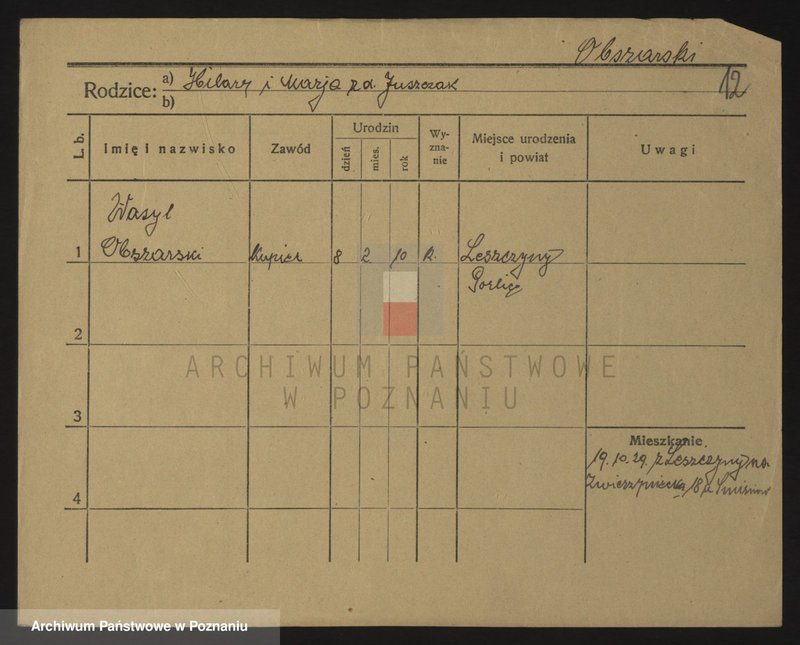 Obszarski
12
Rodzice: a) Hilary i Marja z d. Juszczak
b)
L. b.
Imię i nazwisko
Zawód
Urodzin
dzień
mies.
rok
Wy-
zna-
nie
Miejsce urodzenia
i powiat
Uwagi
Wasyl
1 Obszarski Kupiec 8 2 10 R. Leszczyny
2
3
4
Mieszkanie.
19.10.29. z Leszczyny na
Zwierzyniecką 18 u
ARCHIWUM PAŃSTWOWE
W POZNANIU
Archiwum Państwowe w Poznaniu